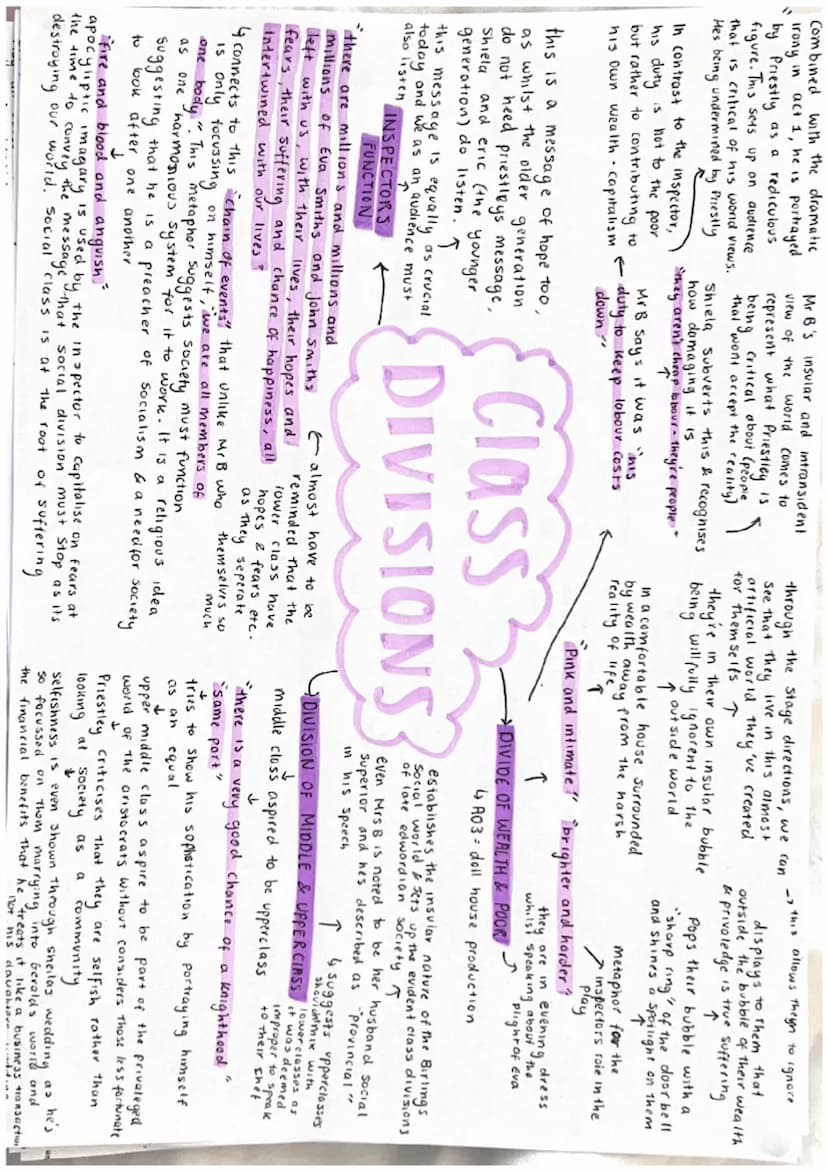 Combined with the dramatic
irony in act 1, he is portrayed
by Priestly as a rediculous
figure. This sets up on audience
that is critical of his world views.
Hes being undermined by Priestly
In contrast to the inspector,
his duty is not to the poor
but rather to contributing to
his own wealth - capitalism
Mr B's insular and intransident
view of the world comes to
represent what Priestley is
being critical about (people
that wont accept the reality)
Shiela subverts this & recognises
how damaging it is
"they aren't cheap labour - they're people"
Mr B says it was "his
duty to keep labour costs
down"
through the stage directions, we can
see that they live in this almost
artificial world they've created
for themselfs
they're in their own insular bubble
being willfully ignorent to the
outside world
In a comfortable house surrounded
by wealth away from the harsh
reality of life
"Pink and intimate" "brighter and harder"
→ this allows them to ignore
displays to them that
outside the bubble of their wealth
& priveledge is true suffering
Pops their bubble with a
"sharp ring" of the door bell
and shines a spotlight on them
metaphor for the
inspectors role in the
play
they are in evening dress
whilst speaking about the
plight of Eva
CLASS
DIVISIONS
DIVIDE OF WEALTH & POOR
↳ AO3 = doll house production
establishes the insular nature of the Birlings
social world & sets up the evident class divisions
of late edwardian society
even Mrs B is noted to be her husband social
superior and hes described as "provincial"
in his speech
↳ suggests upperclasses
shouldnt mix with
lower classes as
it was deemed
improper to speak
to their chef
DIVISION OF MIDDLE & UPPERCLASS
middle class aspired to be upperclass
"there is a very good chance of a knighthood"
"same port"
tries to show his sophistication by portraying himself
as an equal
upper middle class aspire to be part of the privaleged
world of the aristocrats without considers those less fortunate
Priestley criticises that they are selfish rather than
looking at society as a community
selfishness is even shown through sheilas wedding as he's
so focussed on them marrying into Geralds world and
the financial benefits that he treats it like a business transaction
this is a message of hope too,
as whilst the older generation
do not need priestleys message,
Shiela and eric (the younger
generation) do listen.
this message is equally as crucial
today and we as an audience must
also listen
INSPECTORS
FUNCTION
"there are millions and millions and
millions of Eva Smiths and John Smiths
left with us, with their lives, their hopes and
fears, their suffering and chance of happiness, all
intertwined with our lives"
← almost have to be
reminded that the
lower class have
hopes & fears etc.
as they seperate
themselves so
much
↳ connects to this "chain of events" that unlike Mr B who
is only focussing on himself, "we are all members of
one body". This metaphor suggests society must function
as one harmonious system for it to work. It is a religious idea
suggesting that he is a preacher of socialism & a need for society
to look after one another
"fire and blood and anguish"
apocyliptic imagary is used by the inspector to capitalise on fears at
the time to convey the message that social division must stop as its
destroying our world. Social class is at the root of suffering